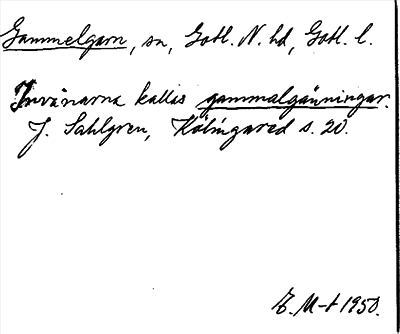 Gammelgarn, sn, Gotl. N. hd, Gotl. l.
Invånarna kallas gammalgänningar.
J. Sahlgren, Kölingared s. 20.
E. M-t 1950.